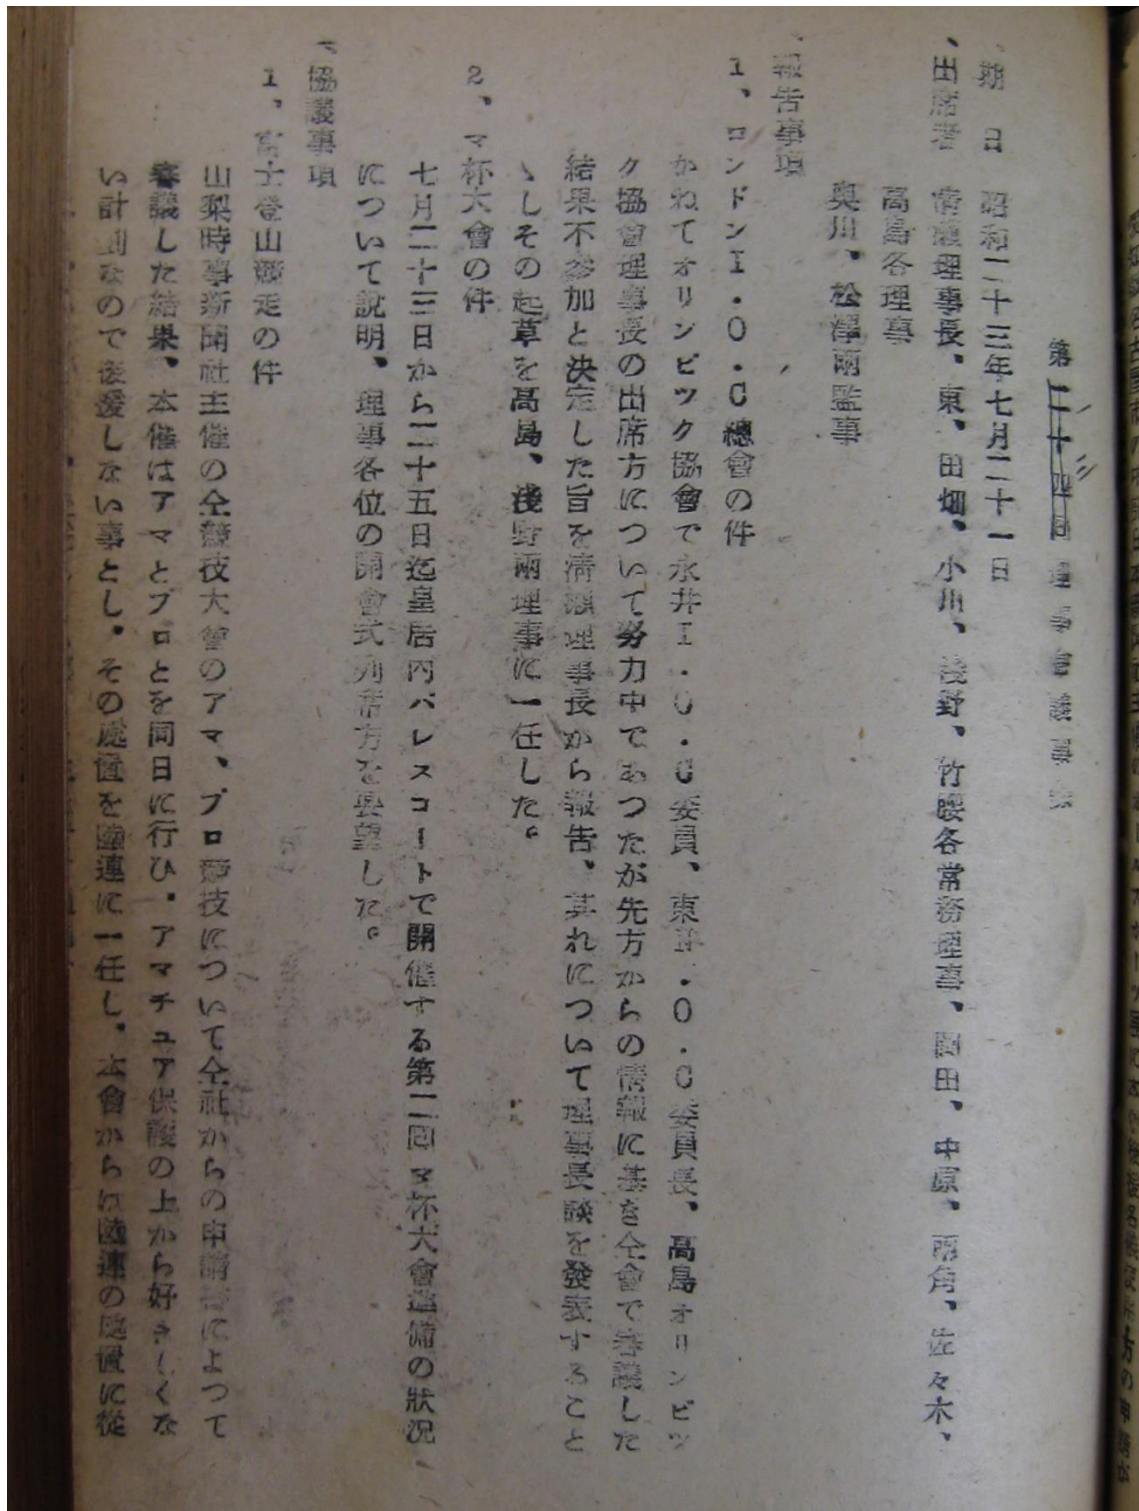 第二十四回理事會議事
、期 日 昭和二十三年七月二十一日
、出席者 清瀬理事長、東、田畑、小川、浅野、竹腰各常務理事、岡田、中原、両角、佐々木、
高島各理事
奥川、松澤兩監事
、報告事項
1、ロンドンI・O・C總會の件
かねてオリンピック協會で永井I・O・C委員、東・O・C委員長、高島オリンピツ
ク協會理事長の出席方について努力中であつたが先方からの情報に基き仝會で審議した
結果不参加と決定した旨を清瀬理事長から報告、其れについて理事長談を發表すること
ゝしその起草を髙島、浅野兩理事に一任した。
2、マ杯大會の件
七月二十三日から二十五日迄皇居内パレスコートで開催する第二回マ杯大會準備の狀況
について説明、理事各位の開會式列席方を要望した。
、協議事項
1、富士登山競走の件
山梨時事新聞社主催の仝競技大會のアマ、プロ競技について仝社からの申請によつて
審議した結果、本催はアマとプロとを同日に行ひ・アマチュア保護の上から好ましくな
い計劃なので後援しない事とし・その處置を陸連に一任し・本會からは陸連の處置に從